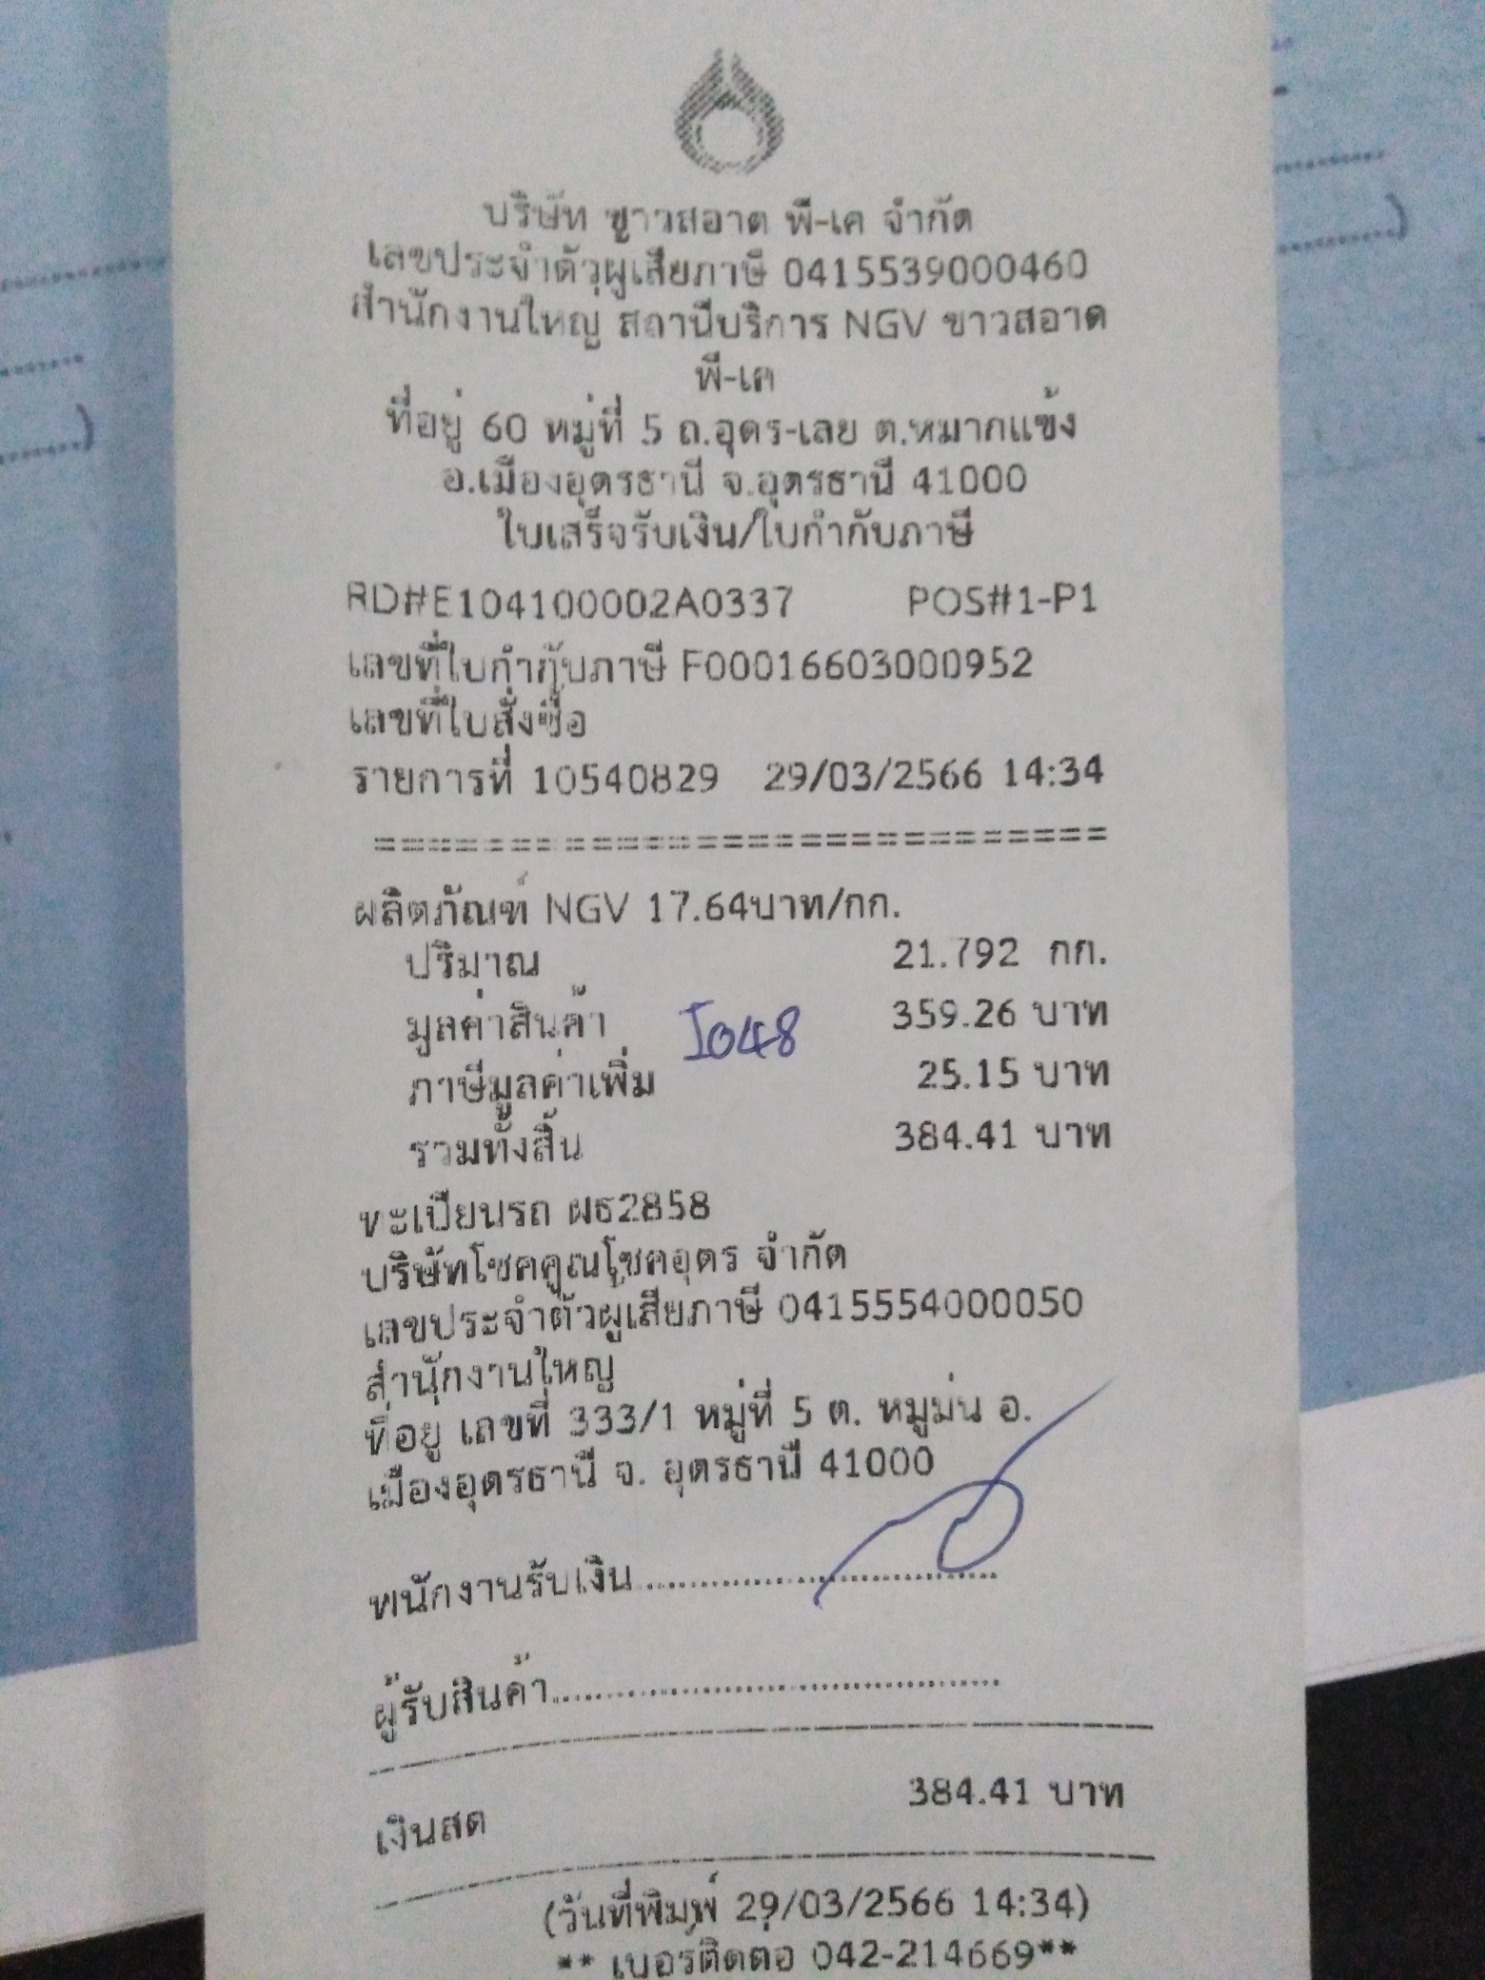 บริษัท ขาวสอาด พี-เค จำกัด
เลขประจำตัวผู้เสียภาษี 0415539000460
สำนักงานใหญ่ สถานีบริการ NGV ขาวสอาด
พี-เค
ที่อยู่ 60 หมู่ที่ 5 ถ.อุดร-เลย ต.หมากแข้ง
อ.เมืองอุดรธานี จ.อุดรธานี 41000
ใบเสร็จรับเงิน/ใบกำกับภาษี
RD#E104100002A0337 POS#1-P1
เลขที่ใบกำกับภาษี F00016603000952
เลขที่ใบสั่งซื้อ
รายการที่ 10540829 29/03/2566 14:34
============================
ผลิตภัณฑ์ NGV 17.64บาท/กก.
ปริมาณ 21.792 กก.
มูลค่าสินค้า 359.26 บาท
I048
ภาษีมูลค่าเพิ่ม 25.15 บาท
รวมทั้งสิ้น 384.41 บาท
ทะเบียนรถ ผธ2858
บริษัทโชคคูณโชคอุดร จำกัด
เลขประจำตัวผู้เสียภาษี 0415554000050
สำนักงานใหญ่
ที่อยู่ เลขที่ 333/1 หมู่ที่ 5 ต. หมูม่น อ.
เมืองอุดรธานี จ. อุดรธานี 41000
พนักงานรับเงิน........................................
ผู้รับสินค้า..................................................
384.41 บาท
เงินสด
(วันที่พิมพ์ 29/03/2566 14:34)
** เบอร์ติดต่อ 042-214669**